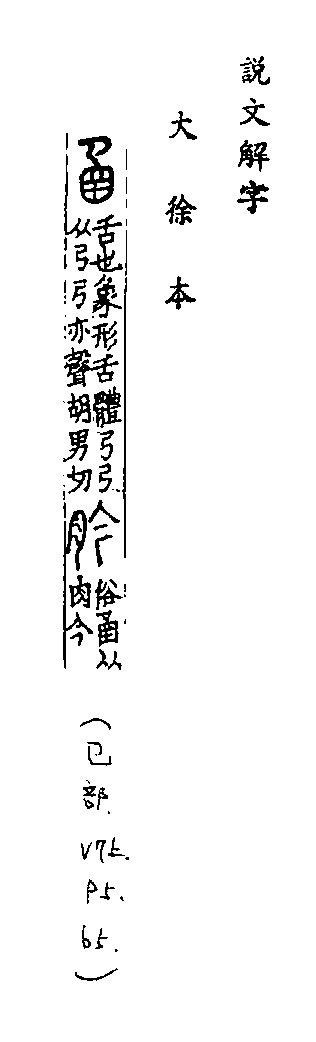 説文解字
大徐本
圅
舌也象形舌體𢎘𢎘
从𢎘𢎘亦聲胡男切
肣
俗圅从
肉今
(㔾部. V7上. P5. b5.)